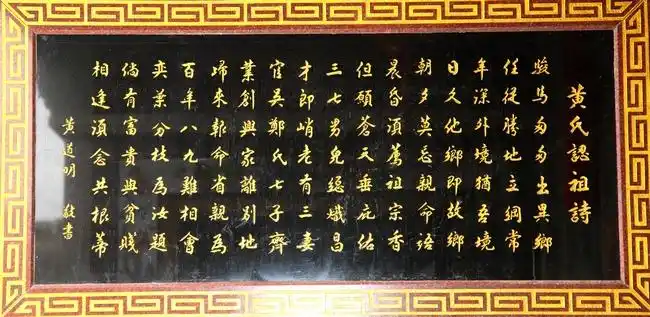 黃氏認祖詩
駿馬匆匆出異鄉
任從勝地立綱常
年深外境猶吾境
日久他鄉即故鄉
朝夕莫忘親命語
晨昏須薦祖宗香
但願蒼天垂庇佑
三七男兒總熾昌
才郎峭老有三妻
官吳鄭氏七子齊
業創興家離別地
歸來報命省親為
百年八九難相會
奕葉分枝為汝題
倘有富貴與貧賤
相逢須念共根蒂
黃道明 敬書